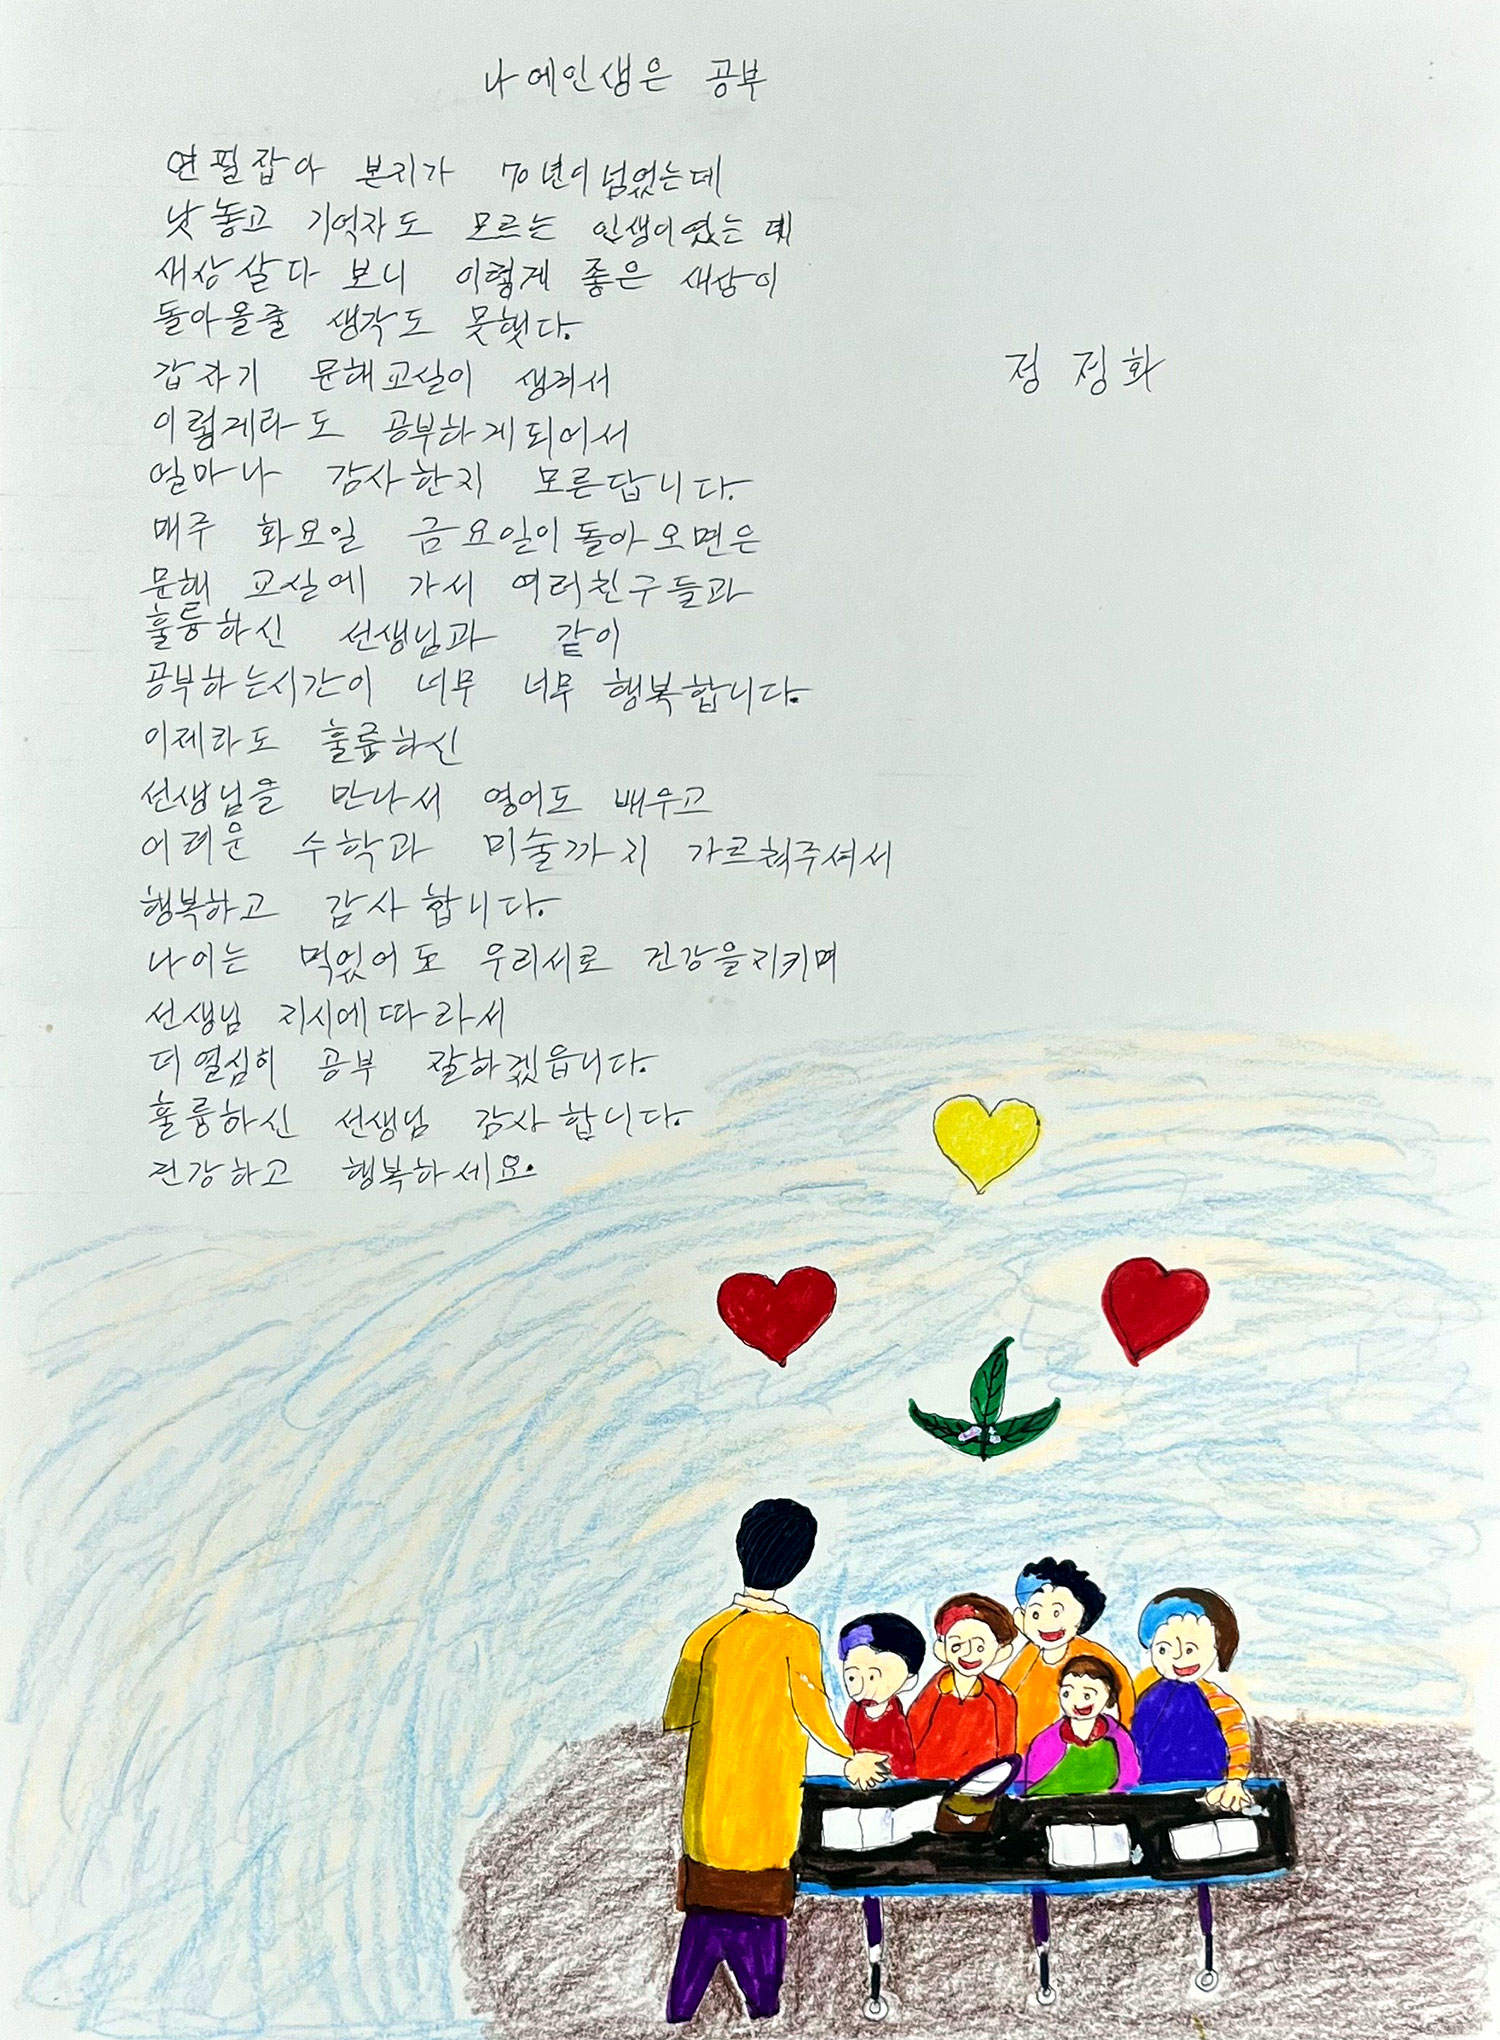 나에인생은 공부
연필잡아 본지가 70년이넘었는데
낫놓고 기역자도 모르는 인생이였는데
새상살다 보니 이렇게 좋은 새상이
돌아올줄 생각도 못햇다.
정정화
갑자기 문해교실이 생겨서
이렇게라도 공부하게되어서
얼마나 감사한지 모른답니다.
매주 화요일 금요일이돌아오면은
문해 교실에 가서 여러친구들과
훌륭하신 선생님과 같이
공부하는시간이 너무 너무 행복합니다.
이제라도 훌륭하신
선생님을 만나서 영어도 배우고
어려운 수학과 미술까지 가르쳐주셔서
행복하고 감사합니다.
나이는 먹었어도 우리서로 건강을지키며
선생님 지시에따라서
더열심히 공부 잘하겠읍니다.
훌륭하신 선생님 감사합니다.
건강하고 행복하세요.